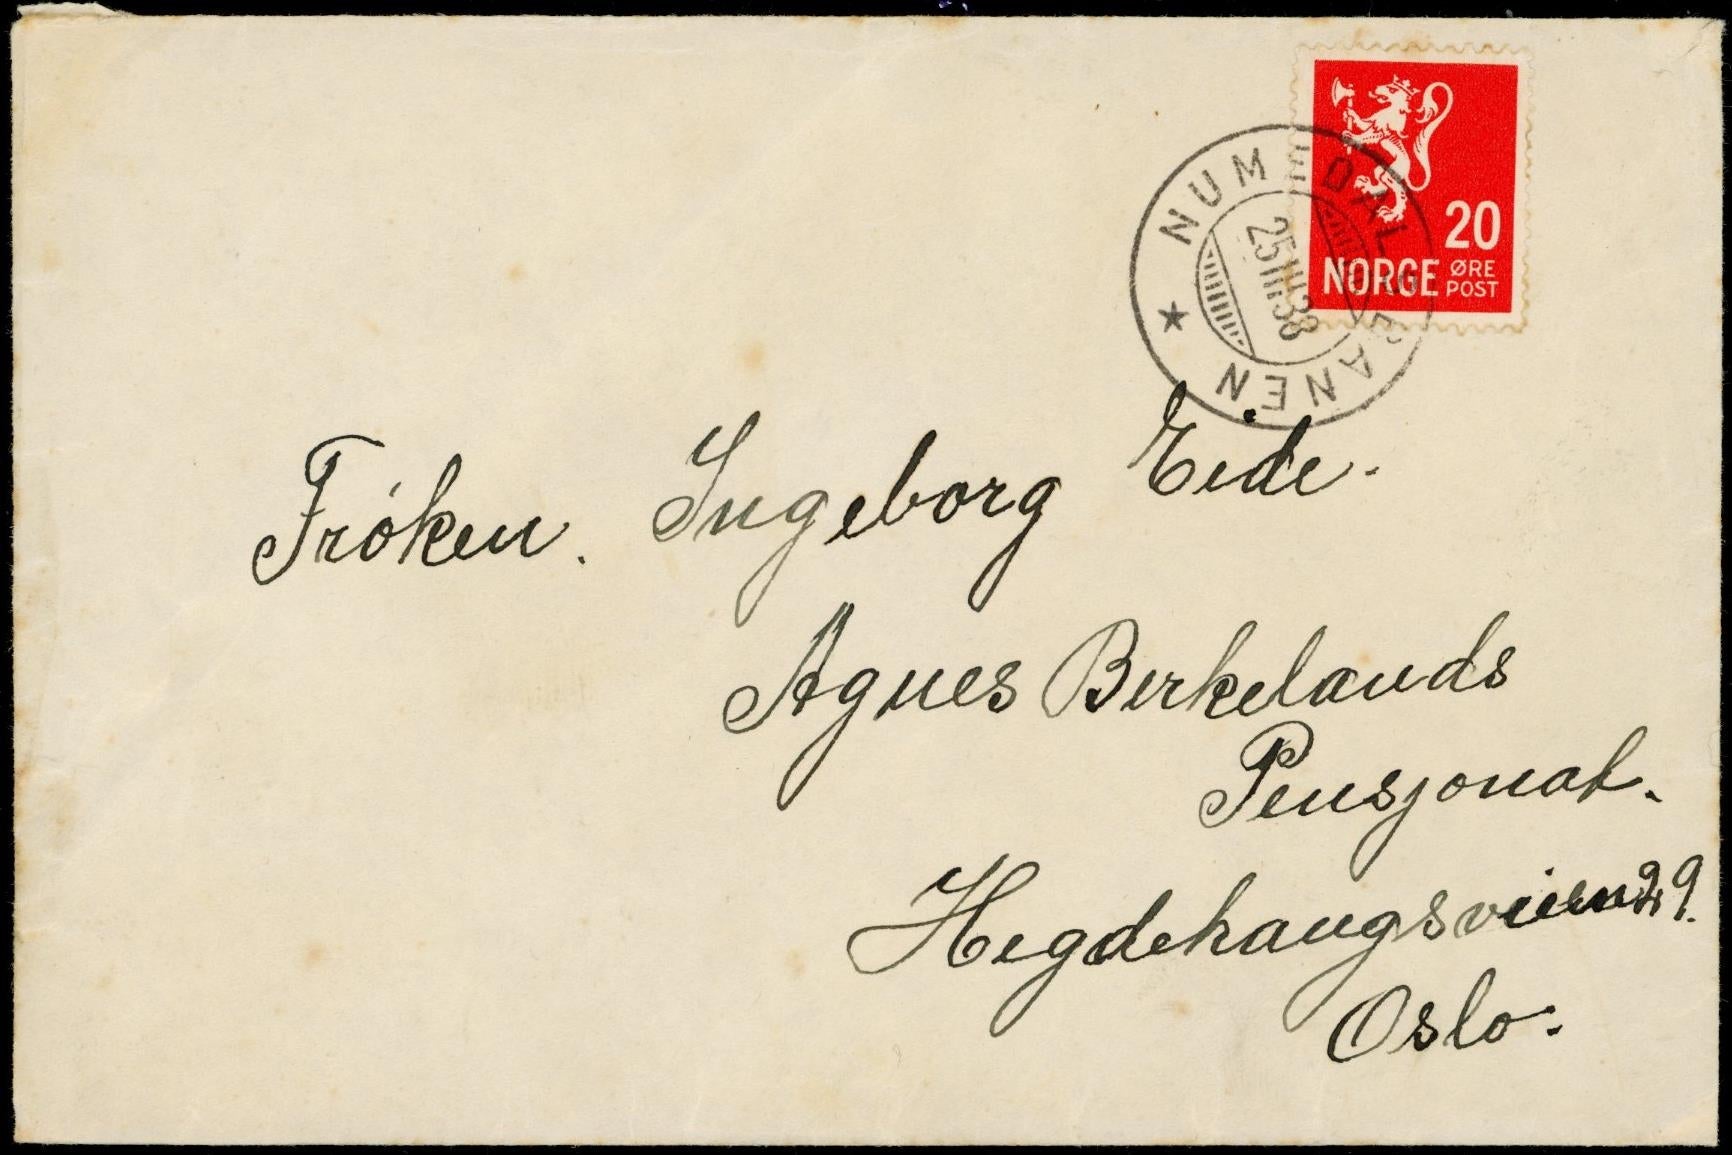 NUMEDALSBANEN
25 III 38
20
NORGE ØRE
POST
Frøken. Ingeborg Eide.
Agnes Birkelands
Pensjonat.
Hegdehaugsveien 29.
Oslo.